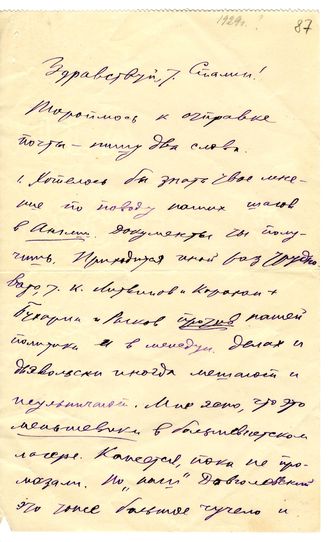 1929г.?
87
Здравствуй, т. Сталин!
Тороплюсь к отправке
почты – пишу два слова.
1. Хотелось бы знать твое мне-
ние по поводу наших шагов
в Англии. Документы ты полу-
чишь. Приходится иной раз трудно
вато, т. к. Литвинов и Карахан +
Бухарин и Рыков против нашей
политики и в междун. делах и
дьявольски иногда мешают и
Мне ясно, что это
меньшевики в большевистском
лагере. Кажется, пока не про-
мазали. Но „наш“ Довгалевский
это тоже большое чучело и